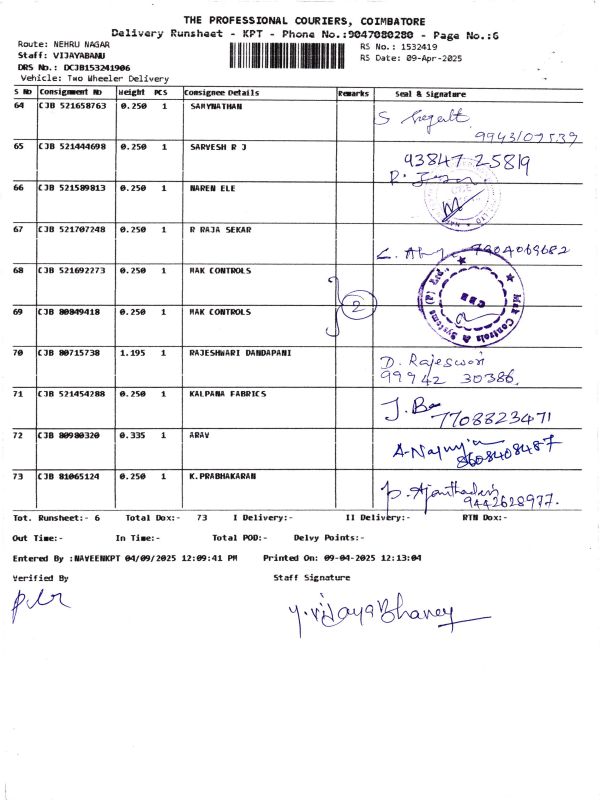 THE PROFESSIONAL COURIERS, COIMBATORE
Delivery Runsheet - KPT - Phone No.:9047080280 - Page No.:6
Route: NEHRU NAGAR
Staff: VIJAYABANU
DRS No.: DCJB153241906
Vehicle: Two Wheeler Delivery
RS No.: 1532419
RS Date: 09-Apr-2025
S No Consignment No Weight PCS Consignee Details Remarks Seal & Signature
64 CJB 521658763 0.250 1 SAMYNATHAN
9943107539
65 CJB 521444698 0.250 1 SARVESH R J
93847 25819
66 CJB 521589813 0.250 1 NAREN ELE
67 CJB 521707248 0.250 1 R RAJA SEKAR
7904069682
68 CJB 521692273 0.250 1 MAK CONTROLS
2
Mak Controls & Systems (P) Ltd
CBE
69 CJB 80849418 0.250 1 MAK CONTROLS
70 CJB 80715738 1.195 1 RAJESHWARI DANDAPANI
D. Rajeswari
99942 30386.
71 CJB 521454288 0.250 1 KALPANA FABRICS
7708823471
72 CJB 80980320 0.335 1 ARAV
8608408487
73 CJB 81065124 0.250 1 K.PRABHAKARAN
9442628977.
Tot. Runsheet:- 6 Total Dox:- 73 I Delivery:- II Delivery:- RTN Dox:-
Out Time:- In Time:- Total POD:- Delvy Points:-
Entered By :NAVEENKPT 04/09/2025 12:09:41 PM Printed On: 09-04-2025 12:13:04
Verified By Staff Signature